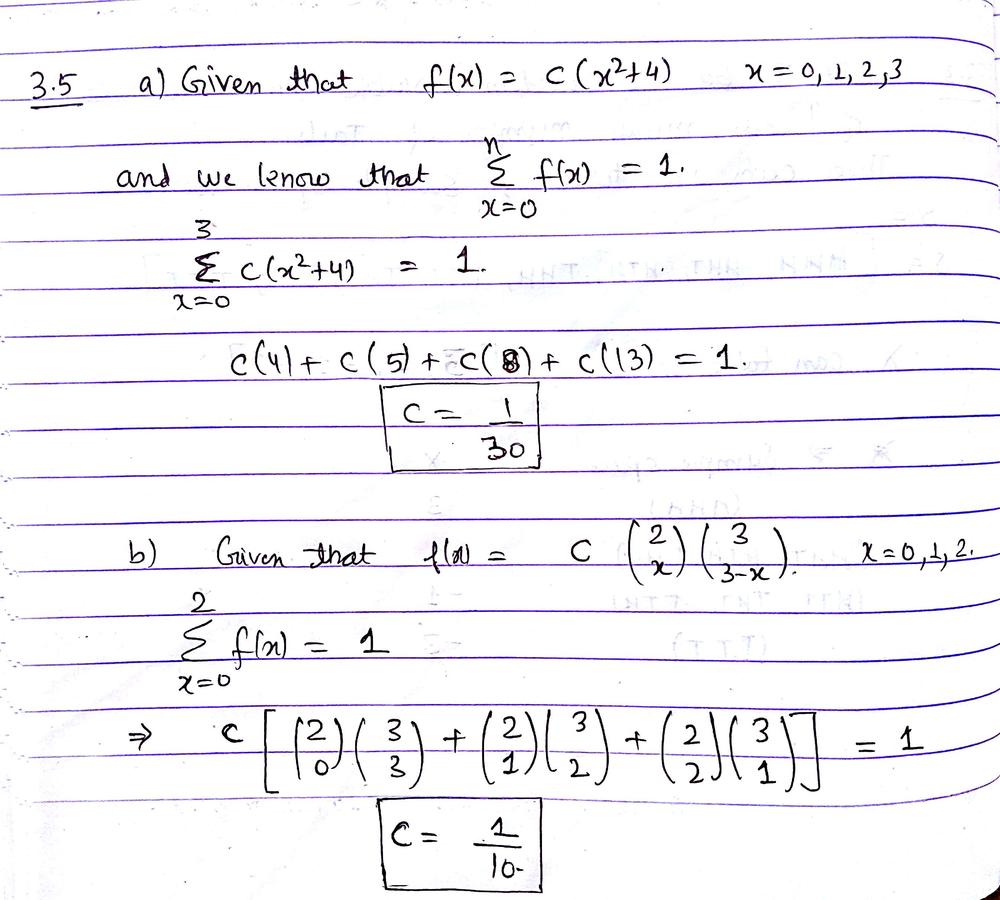 3.5 a) Given that f(x) = c(x²+4) x = 0, 1, 2, 3
and we know that \sum_{x=0}^{n} f(x) = 1.
\sum_{x=0}^{3} c(x²+4) = 1.
c(4) + c(5) + c(8) + c(13) = 1.
c = \frac{1}{30}
b) Given that f(x) = C \binom{2}{x} \binom{3}{3-x}. x=0,1,2.
\sum_{x=0}^{2} f(x) = 1
⇒ c [ \binom{2}{0} \binom{3}{3} + \binom{2}{1} \binom{3}{2} + \binom{2}{2} \binom{3}{1} ] = 1
C = \frac{1}{10}